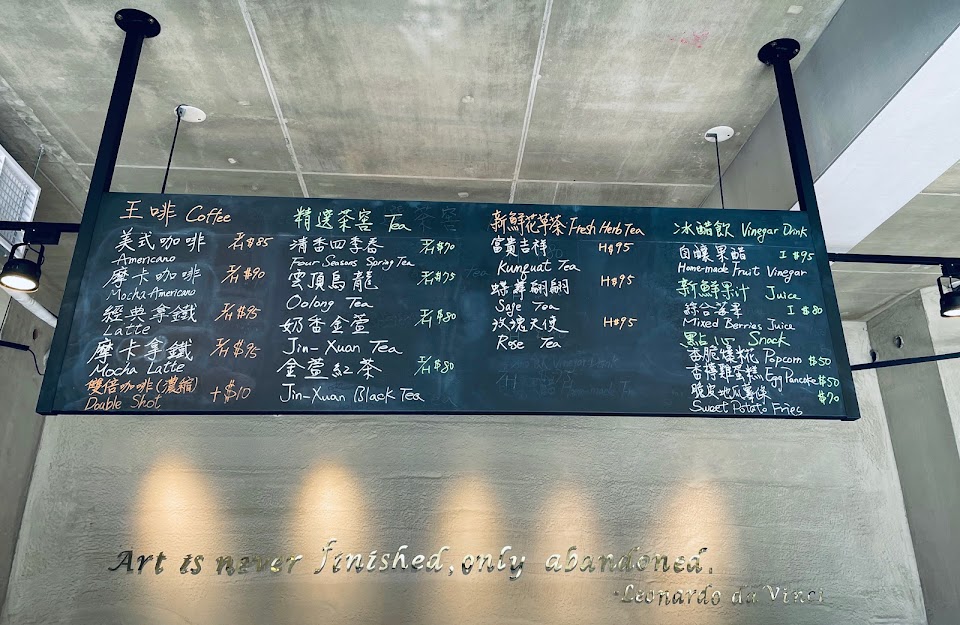 王啡 Coffee
美式咖啡 I/H $85
Americano
摩卡咖啡 I/H $90
Mocha Americano
經典拿鐵 I/H $95
Latte
摩卡拿鐵 I/H $95
Mocha Latte
雙倍咖啡(濃縮) +$10
Double Shot
精選茶窖 Tea
清香四季春 I/H $70
Four Seasons Spring Tea
雲頂烏龍 I/H $75
Oolong Tea
奶香金萱 I/H $80
Jin-Xuan Tea
金萱紅茶 I/H $80
Jin-Xuan Black Tea
新鮮花草茶 Fresh Herb Tea
富貴吉祥 H $95
Kunguat Tea
蝶舞翩翩 H $95
Sage Tea
玫瑰天使 H $95
Rose Tea
冰醋飲 Vinegar Drink
自釀果醋 I $95
Home-made Fruit Vinegar
新鮮果汁 Juice
綜合莓果 I $80
Mixed Berries Juice
點心 Snack
香脆爆米花 Popcorn $50
香檸雞蛋糕 Egg Pancake $50
脆皮地瓜薯條 $70
Sweet Potato Fries
Art is never finished, only abandoned.
Leonardo da Vinci